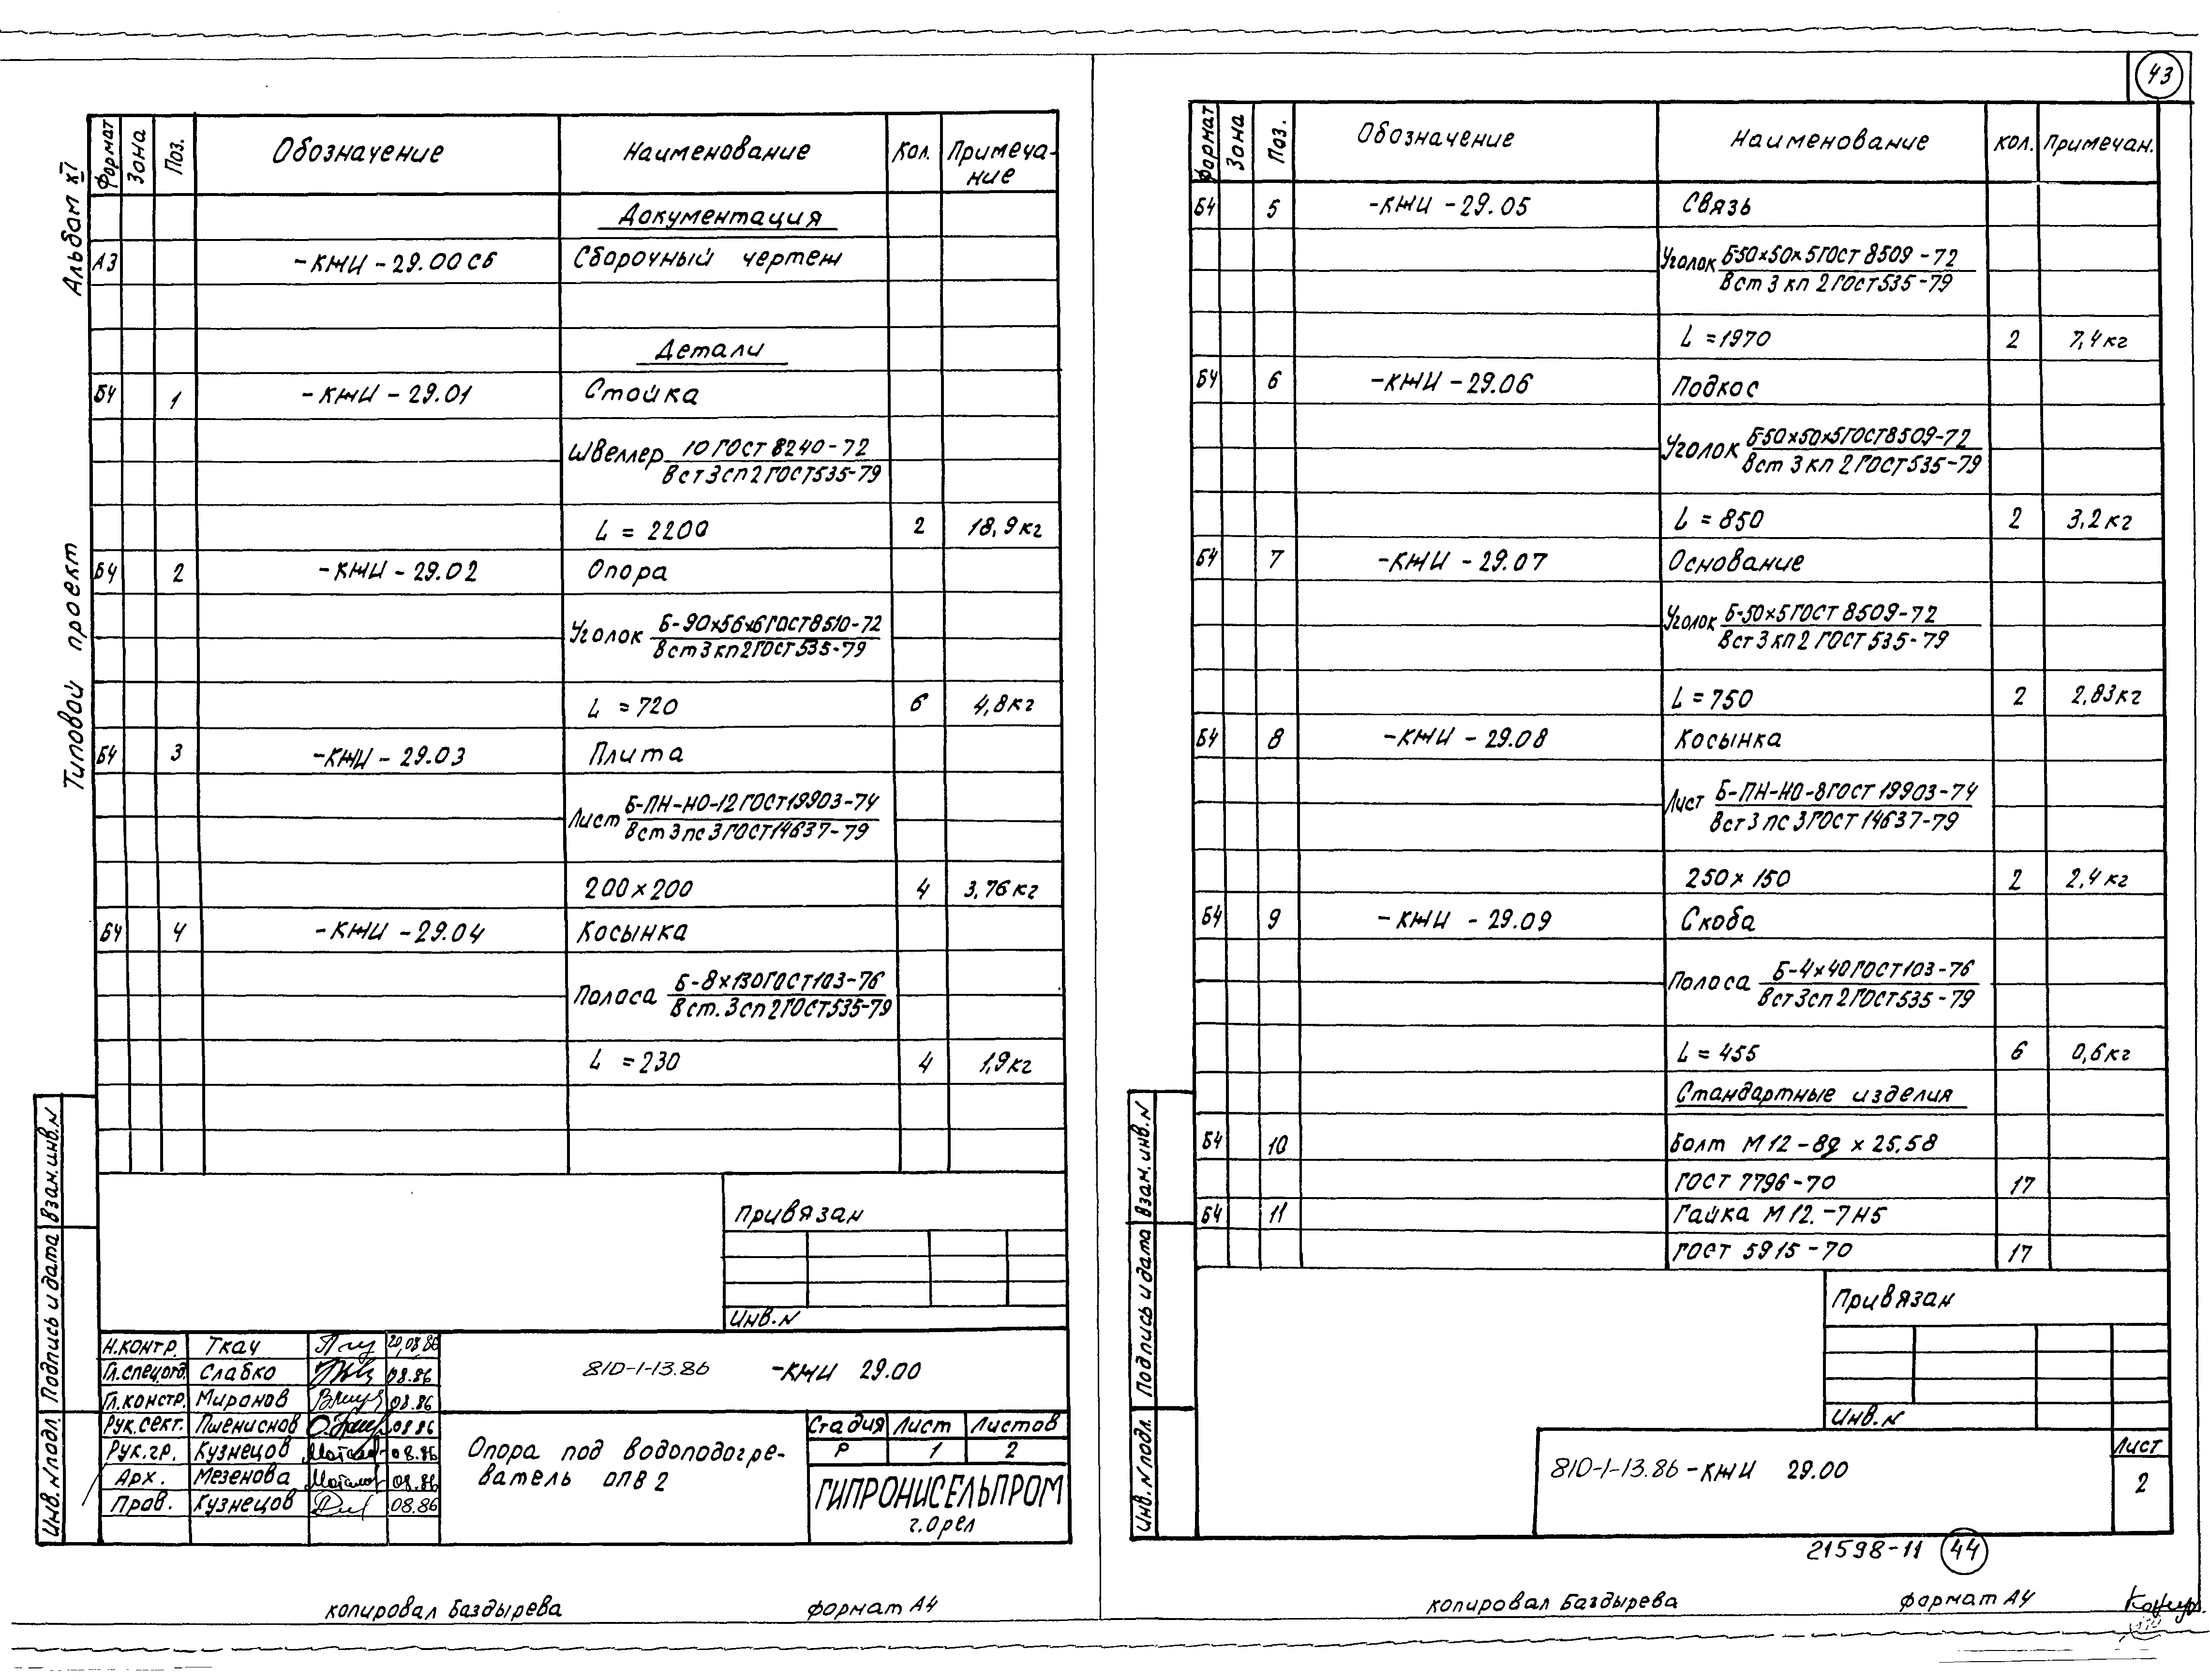 43
Альбам XI
Типовой проект
Формат Зона Поз. Обозначение Наименование Кол. Примеча-
ние
Документация
А3 -КЖИ-29.00СБ Сборочный чертеж
Детали
Б4 1 -КЖИ-29.01 Стойка
Швеллер 10 ГОСТ 8240-72
Вст3сп2ГОСТ535-79
L = 2200 2 18,9кг
Б4 2 -КЖИ-29.02 Опора
Уголок Б-90х56х6ГОСТ8510-72
Вст3кп2ГОСТ535-79
L = 720 6 4,8кг
Б4 3 -КЖИ-29.03 Плита
Лист Б-ПН-НО-12ГОСТ19903-74
Вст3пс3ГОСТ14637-79
200х200 4 3,76кг
Б4 4 -КЖИ-29.04 Косынка
Полоса Б-8х130ГОСТ103-76
Вст.3сп2ГОСТ535-79
L = 230 4 1,9кг
Привязан
Инв.N
Н.контр. Ткач 20.08.86
Гл.спецотд. Слабко 08.86
Гл.констр. Миронов 08.86
Рук.сект. Пшениснов 08.86
Рук.гр. Кузнецов 08.86
Арх. Мезенова 08.86
Пров. Кузнецов 08.86
810-1-13.86 -КЖИ 29.00
Опора под водоподогре-
ватель ОПВ2
Стадия Лист Листов
Р 1 2
ГИПРОНИСЕЛЬПРОМ
г.Орел
Инв.N подл. Подпись и дата Взам.инв.N
копировал Баздырева формат А4
Формат Зона Поз. Обозначение Наименование Кол. Примечан.
Б4 5 -КЖИ-29.05 Связь
Уголок Б-50х50х5ГОСТ 8509-72
Вст3кп2ГОСТ535-79
L = 1970 2 7,4кг
Б4 6 -КЖИ-29.06 Подкос
Уголок Б-50х50х5ГОСТ8509-72
Вст3кп2ГОСТ535-79
L = 850 2 3,2кг
Б4 7 -КЖИ-29.07 Основание
Уголок Б-50х5ГОСТ 8509-72
Вст3кп2 ГОСТ 535-79
L = 750 2 2,83кг
Б4 8 -КЖИ-29.08 Косынка
Лист Б-ПН-НО-8ГОСТ 19903-74
Вст3пс3ГОСТ 14637-79
250х150 2 2,4кг
Б4 9 -КЖИ-29.09 Скоба
Полоса Б-4х40ГОСТ103-76
Вст3сп2ГОСТ535-79
L = 455 6 0,6кг
Стандартные изделия
Б4 10 Болт М12-8g х 25.58
ГОСТ 7796-70 17
Б4 11 Гайка М12.-7Н5
ГОСТ 5915-70 17
Привязан
Инв.N
810-1-13.86-КЖИ 29.00
Лист
2
Инв.N подл. Подпись и дата Взам.инв.N
21598-11 44
копировал Баздырева формат А4